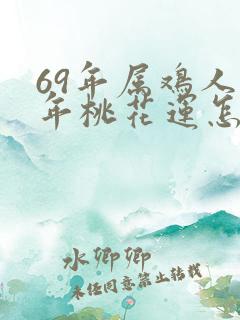 69年属鸡人
年桃花运怎
水卿卿
未经同意禁止转载